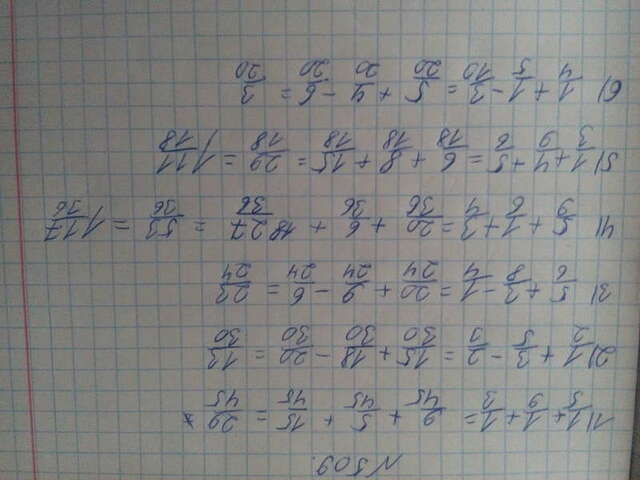 №509.
1) 1/5 + 1/9 + 1/3 = 9/45 + 5/45 + 15/45 = 29/45
2) 1/2 + 3/5 - 2/3 = 15/30 + 18/30 - 20/30 = 13/30
3) 5/6 + 3/8 - 1/4 = 20/24 + 9/24 - 6/24 = 23/24
4) 5/9 + 1/6 + 3/4 = 20/36 + 6/36 + 27/36 = 53/36 = 1 17/36
5) 1/3 + 4/9 + 5/6 = 6/18 + 8/18 + 15/18 = 29/18 = 1 11/18
6) 1/4 + 1/5 - 3/10 = 5/20 + 4/20 - 6/20 = 3/20